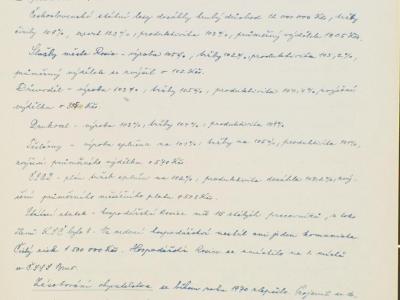 Československé státní lesy dosáhly hrubý důchod 12 000 000 Kčs, tržby
činily 105%, export 123%, produktivita 103%, průměrný výdělek 1905 Kčs.
Služby města Rosic - výroba 105%, tržby 102%, produktivita 103,2%,
průměrný výdělek se zvýšil o 102 Kčs.
Dřevodíl - výroba 103%, tržby 105%, produktivita 104,4%, zvýšení
výdělku o Kčs.
Drukont - výroba 103%, tržby 104%, produktivita 108%.
výroba splněna na 101%, tržby na 105%, produktivita
zvýšení průměrného výdělku o 540 Kčs.
- plán tržeb splněn na 102%, produktivita dosáhla zvý-
šení průměrného měsíčního platu o Kčs.
Státní statek - hospodářství Rosice má 15 stálých pracovníků, z toho
členů KSČ bylo 1. Na vedení hospodářství nestál ani jeden komunista.
Čistý zisk 1 500 000 Kčs. Hospodářství Rosice se umístilo na 1. místě
v Brno.
Zásobování obyvatelstva se během roku 1970 zlepšilo. Projevit se